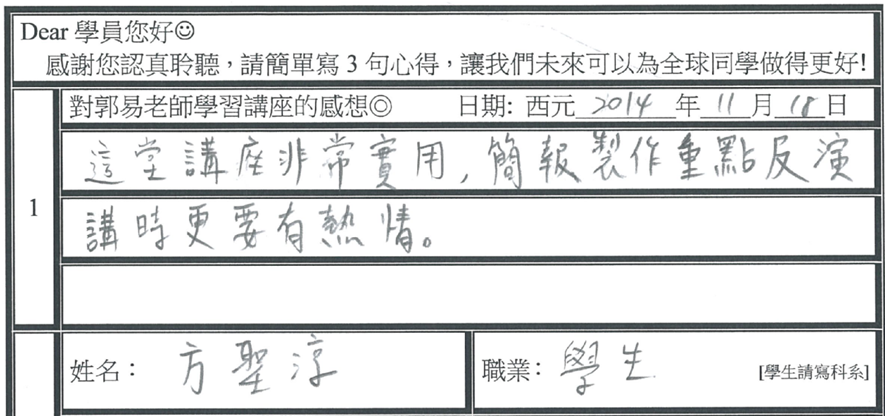 Dear 學員您好☺
感謝您認真聆聽，請簡單寫 3 句心得，讓我們未來可以為全球同學做得更好!
1
對郭易老師學習講座的感想◎ 日期: 西元 2014 年 11 月 18 日
這堂講座非常實用，簡報製作重點及演
講時更要有熱情。
姓名： 方聖淳 職業： 學生 [學生請寫科系]